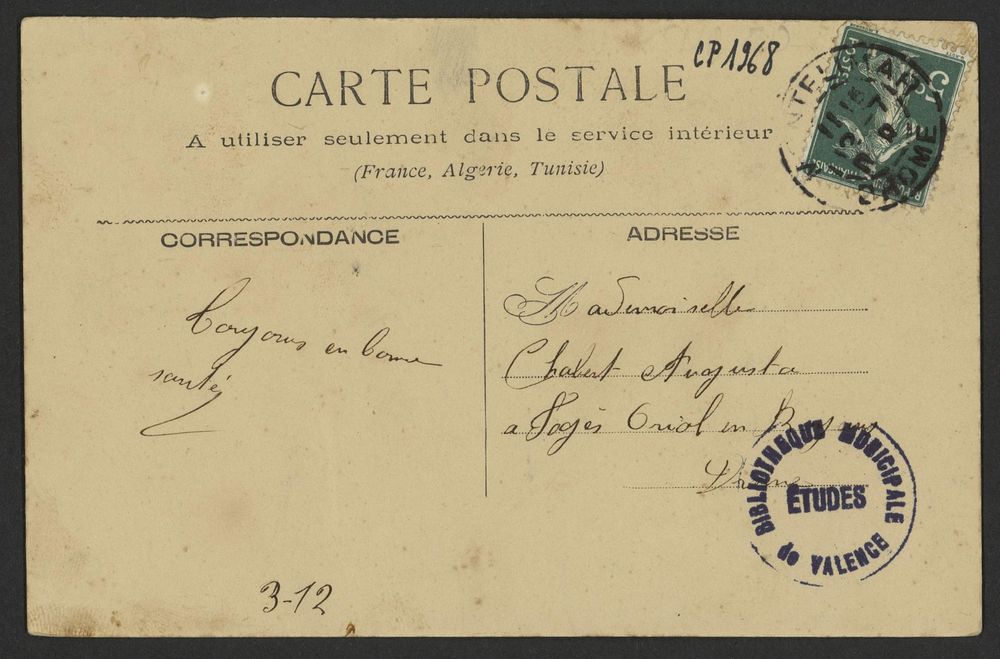 CP1968
CARTE POSTALE
A utiliser seulement dans le service intérieur
(France, Algérie, Tunisie)
5
DROME
CORRESPONDANCE
ADRESSE
Toujours en bonne
santé
Mademoiselle
Chabert Augusta
a Fogès Oriol en Royans
Drome
BIBLIOTHEQUE MUNICIPALE
ÉTUDES
de VALENCE
3-12